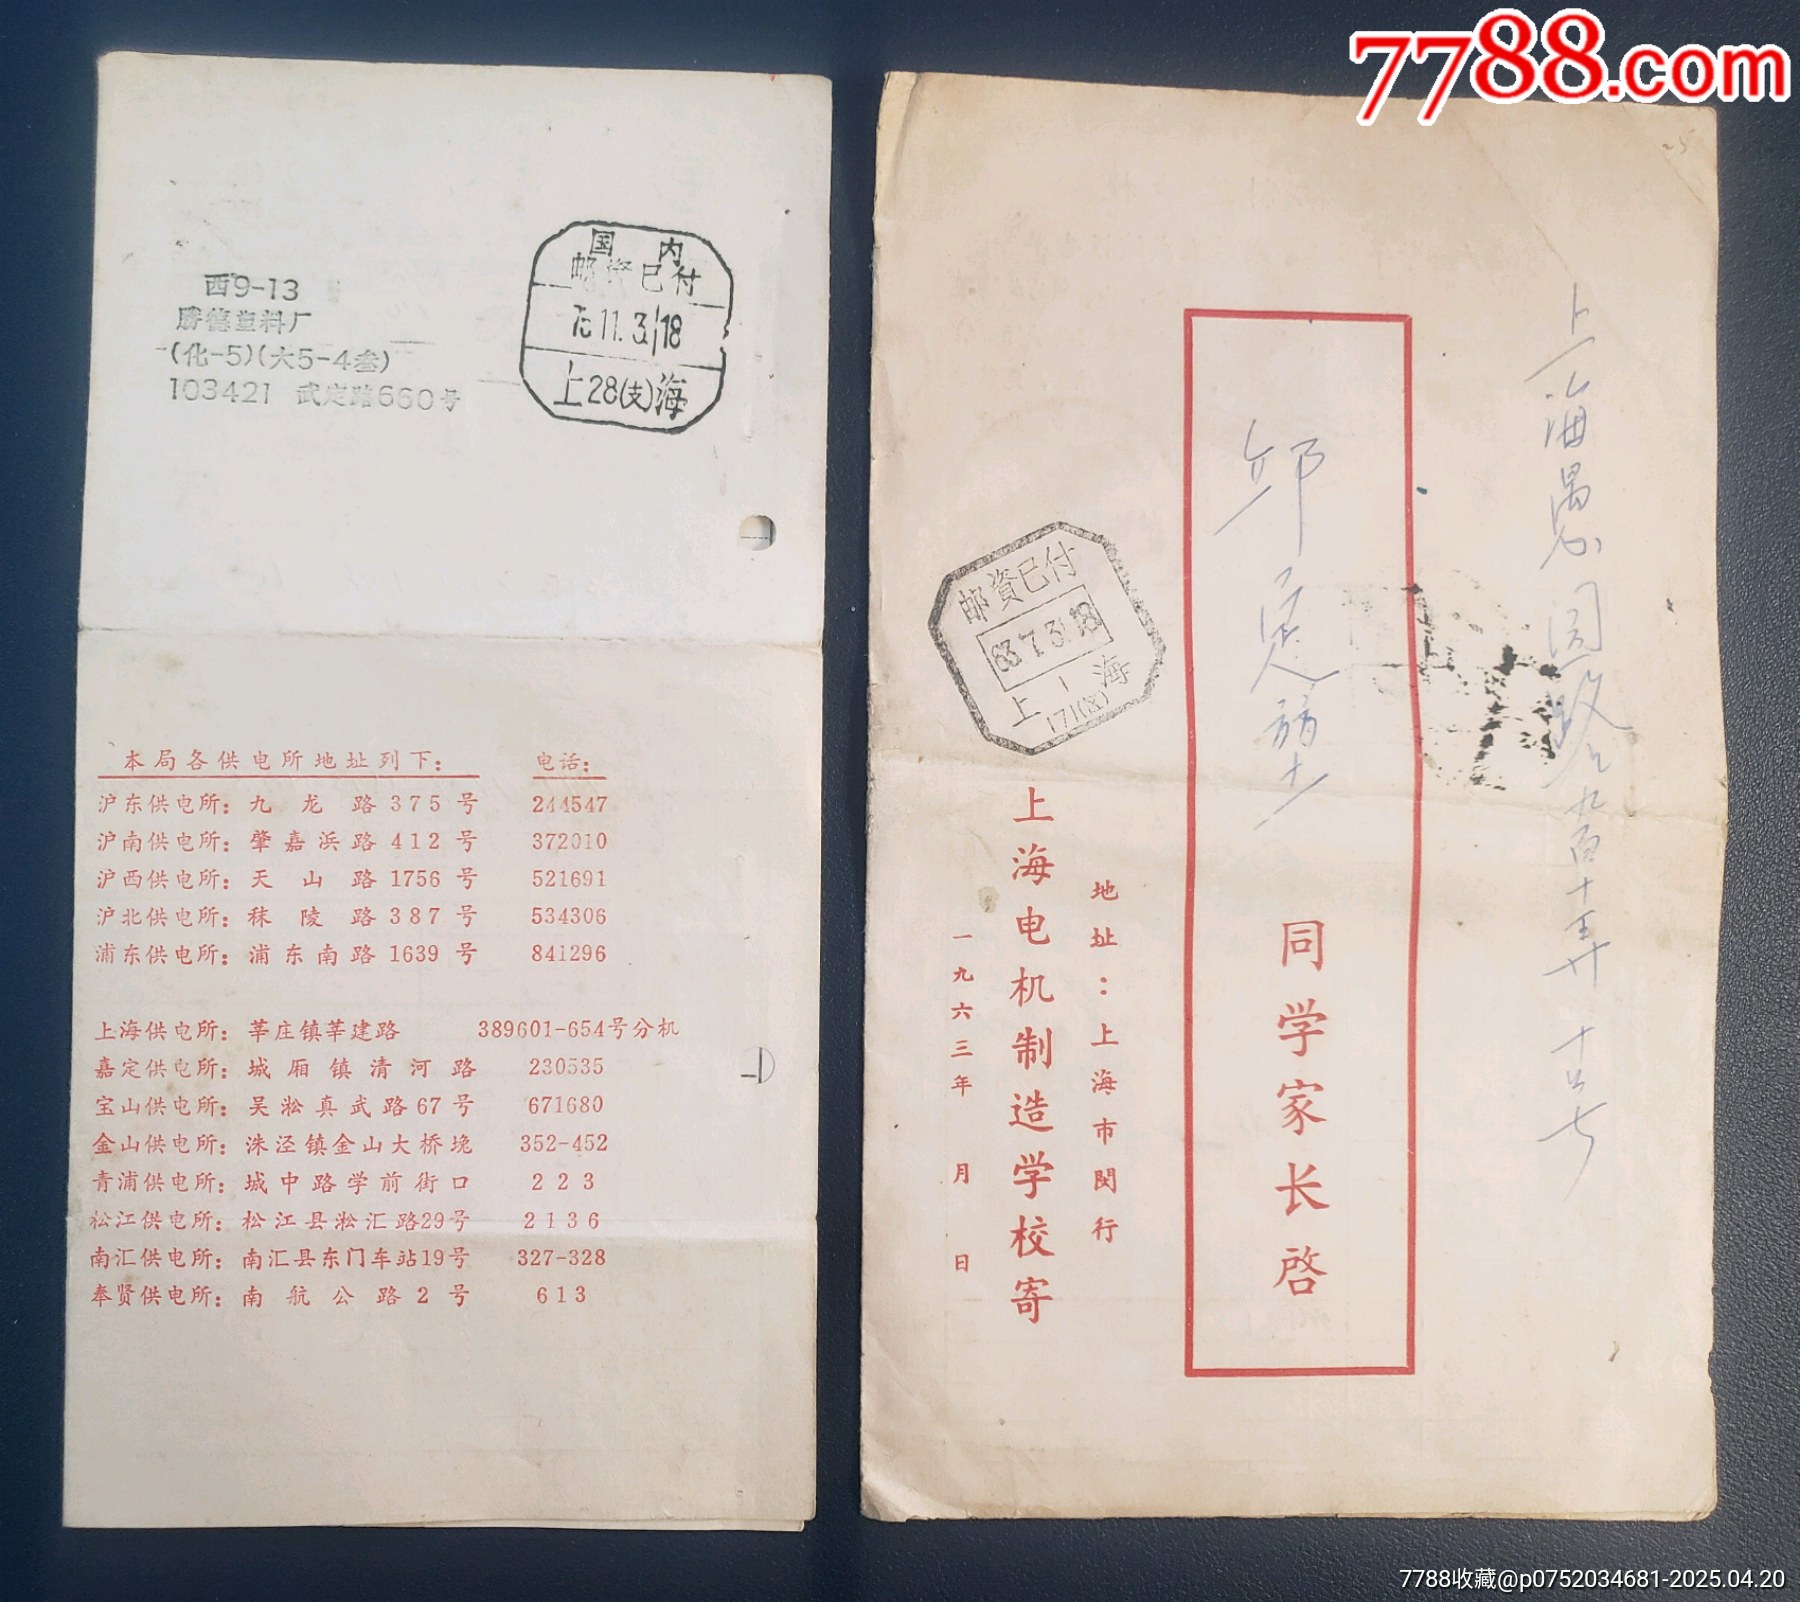 7788.com
西9-13
胜德塑料厂
(化-5)(大5-4叁)
103421 武定路660号
国内
邮资已付
11.3.18
上28(支)海
本局各供电所地址列下： 电话：
沪东供电所：九龙路375号 244547
沪南供电所：肇嘉浜路412号 372010
沪西供电所：天山路1756号 521691
沪北供电所：秣陵路387号 534306
浦东供电所：浦东南路1639号 841296
上海供电所：莘庄镇莘建路 389601-654号分机
嘉定供电所：城厢镇清河路 230535
宝山供电所：吴淞真武路67号 671680
金山供电所：洙泾镇金山大桥堍 352-452
青浦供电所：城中路学前街口 223
松江供电所：松江县淞汇路29号 2136
南汇供电所：南汇县东门车站19号 327-328
奉贤供电所：南航公路2号 613
上海愚园路 九百十弄 十七
同学家长启
邮資已付
63.7.31.18
上海
171(支)
地址：上海市闵行
上海电机制造学校寄
一九六三年 月 日
7788收藏@p0752034681-2025.04.20